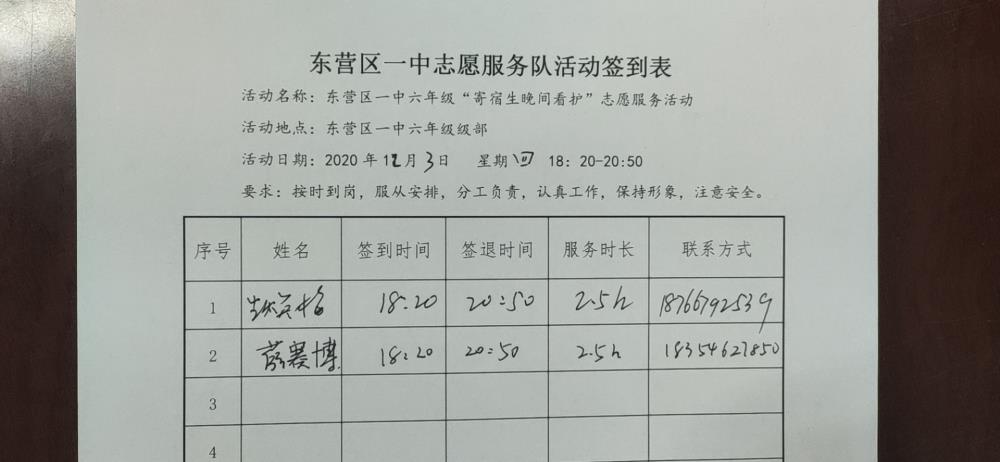 东营区一中志愿服务队活动签到表
活动名称：东营区一中六年级“寄宿生晚间看护”志愿服务活动
活动地点：东营区一中六年级级部
活动日期：2020 年 12月 3日 星期 四 18：20-20:50
要求：按时到岗，服从安排，分工负责，认真工作，保持形象，注意安全。
序号 姓名 签到时间 签退时间 服务时长 联系方式
1 18:20 20:50 2.5h 18766792539
2 博 18:20 20:50 2.5h 18354627850
3
4